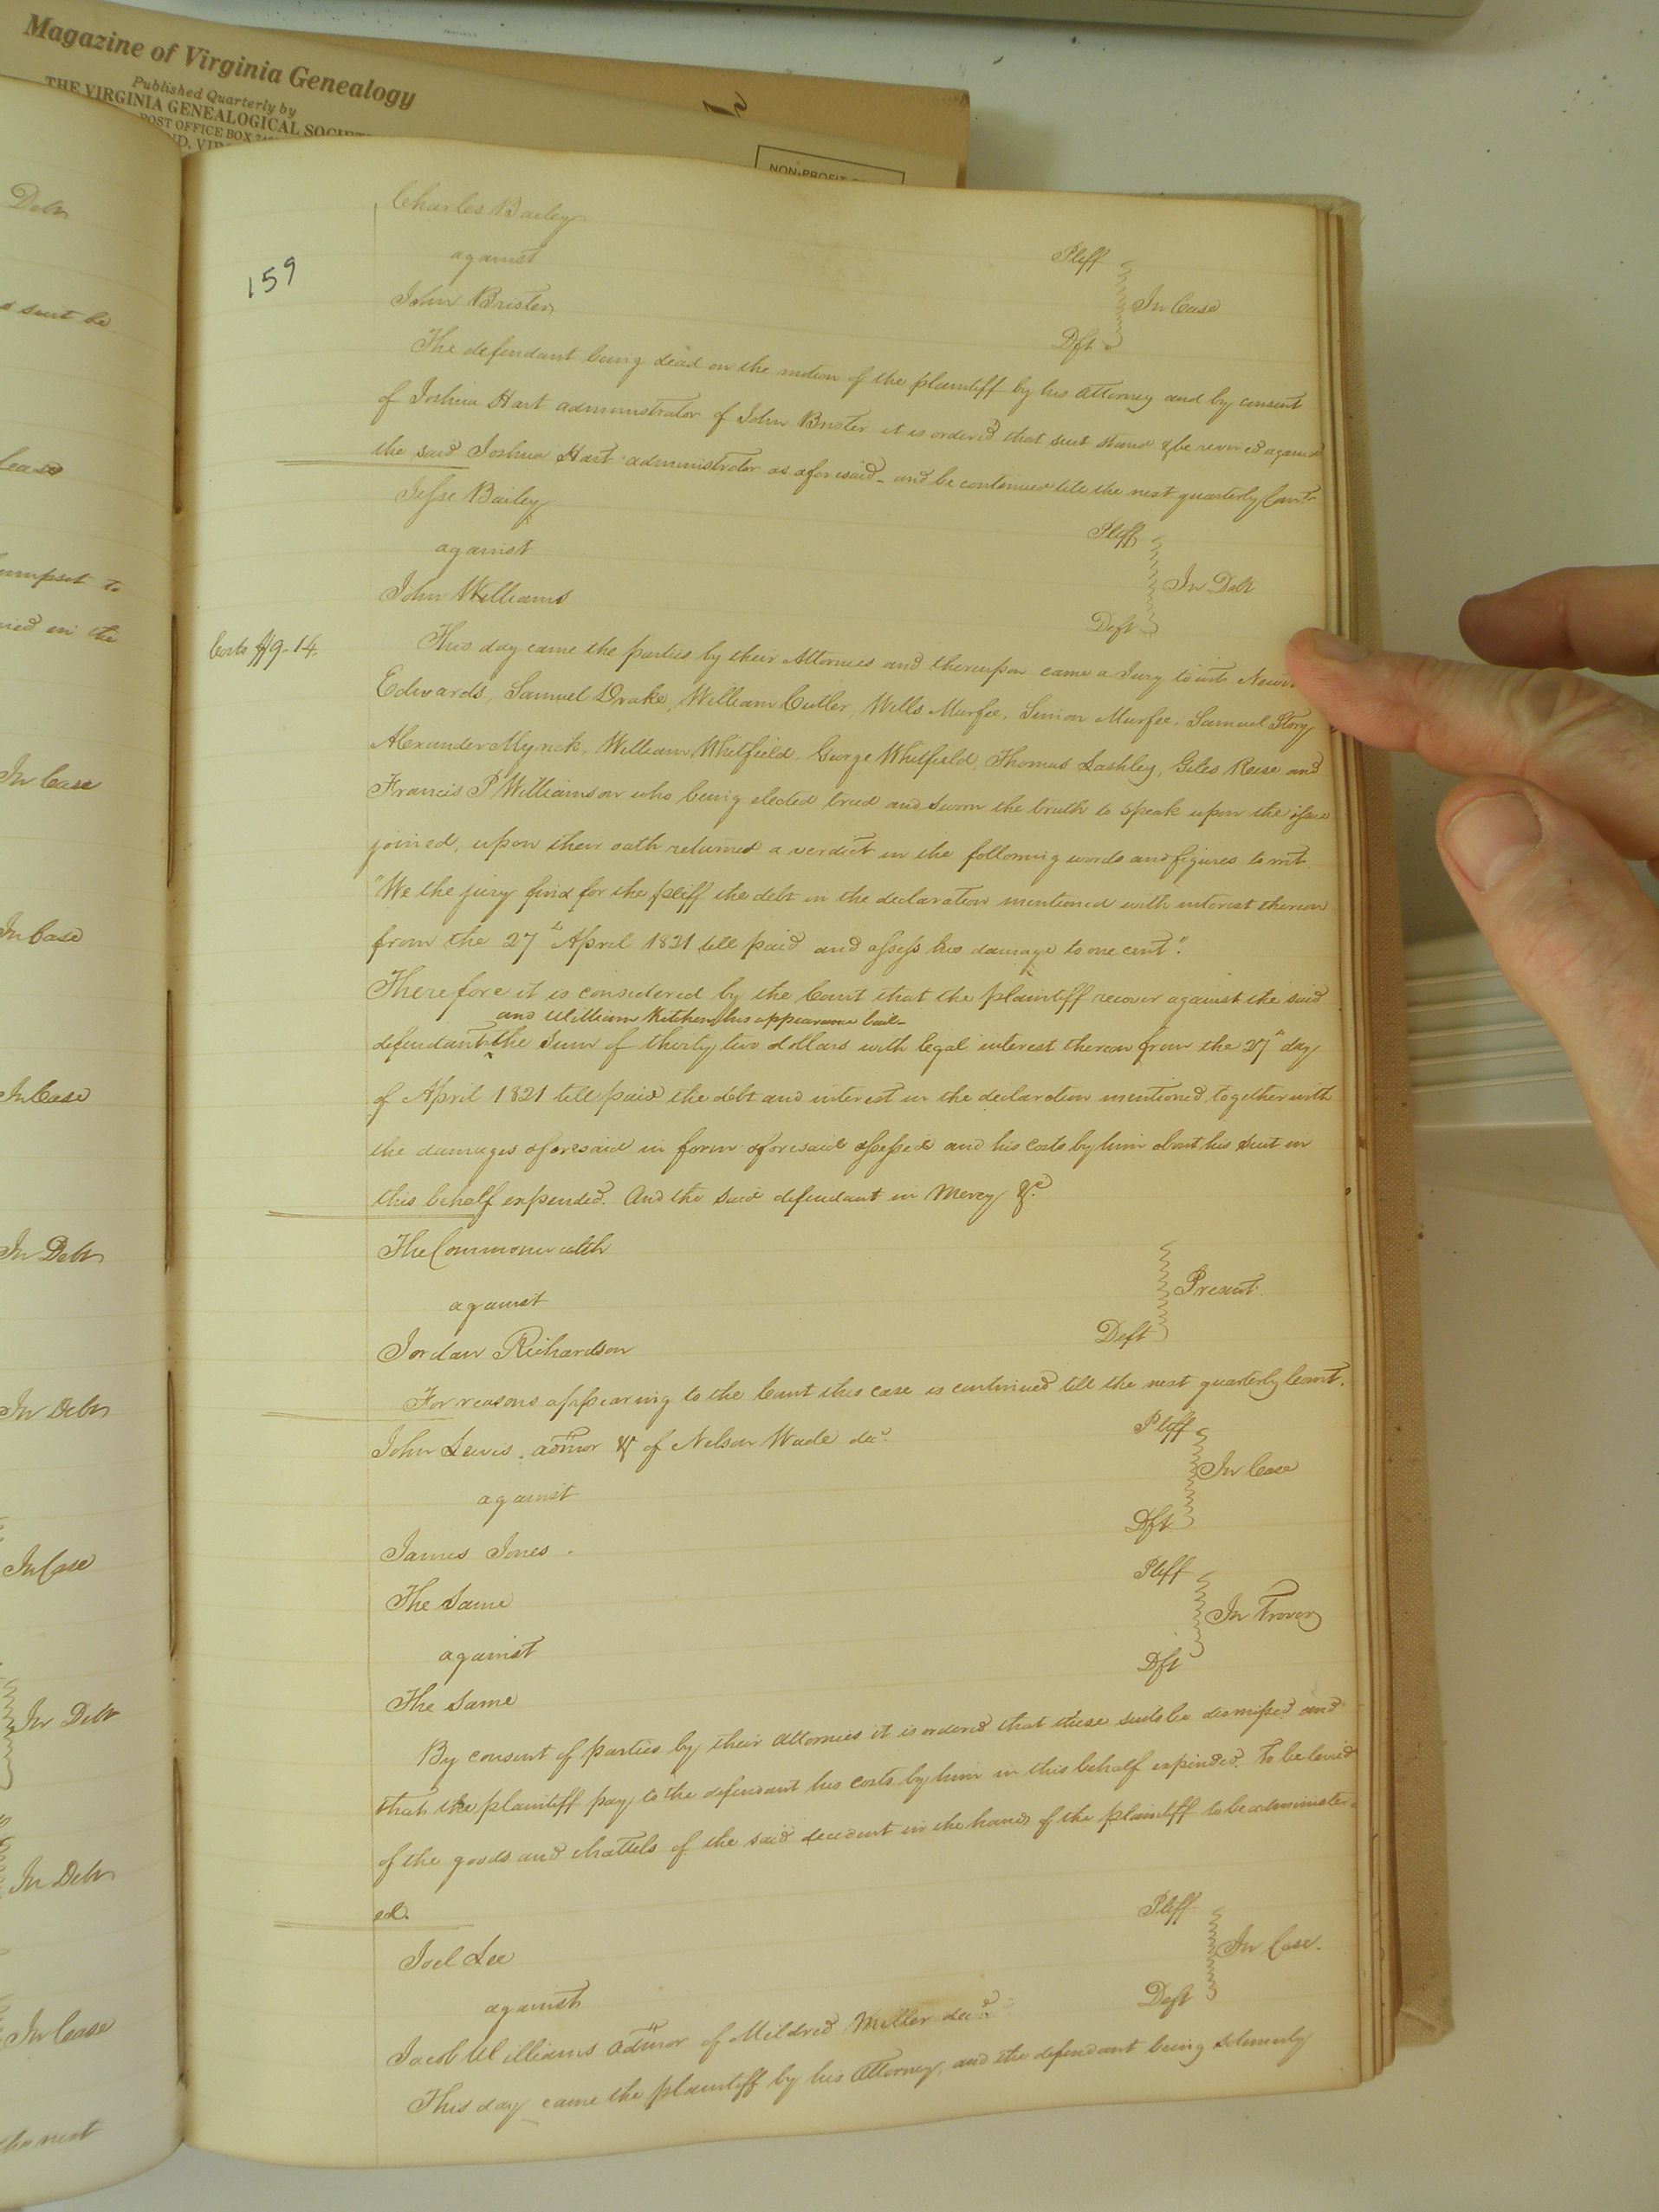 Magazine of Virginia Genealogy
Published Quarterly by
THE VIRGINIA GENEALOGICAL
POST OFFICE BOX
NON-PROFIT
159
Charles Bailey
against
Pliff
John Brister
In Case
Dft
The defendant being dead on the motion of the plaintiff by his attorney and by consent
of Joshua Hart administrator of John Brister it is ordered that suit stand & be revived against
the said Joshua Hart administrator as aforesaid - and be continued till the next quarterly Court
Jesse Bailey
Pliff
against
In Debt
John Williams
Deft
Costs $9-14.
This day came the parties by their Attornies and thereupon came a Jury to wit
Edwards, Samuel Drake, William Cutler, Wells Murfee, Simon Murfee, Samuel Story
Alexander Myrick, William Whitfield, George Whitfield, Thomas Lashley, Giles Reese and
Francis P Williamson who being elected tried and sworn the truth to speak upon the issue
joined, upon their oath returned a verdict in the following words and figures to wit.
"We the jury find for the pliff the debt in the declaration mentioned with interest thereon
from the 27th April 1821 till paid and assess his damage to one cent".
Therefore it is considered by the Court that the plaintiff recover against the said
and William Kitchen his appearance bail-
defendant ^ the Sum of thirty two dollars with legal interest thereon from the 27th day
of April 1821 till paid the debt and interest in the declaration mentioned, together with
the damages aforesaid in form aforesaid assessed and his costs by him about his suit in
this behalf expended. And the said defendant in Mercy &c
The Commonwealth
against
Present.
Jordan Richardson
Deft
For reasons appearing to the Court this case is continued till the next quarterly Court.
John Lewis, admor & of Nelson Wade decd
Pliff
against
In Case
James Jones.
Dft
The Same
Pliff
against
In Trover
The Same
Dft
By consent of parties by their attornies it is ordered that these suits be dismissed and
that the plaintiff pay to the defendant his costs by him in this behalf expended. To be levied
of the goods and chattels of the said decedent in the hands of the plaintiff to be administer
ed.
Joel Lee
Pliff
against
In Case.
Jacob Williams admor of Mildred Miller decd
Deft
This day came the plaintiff by his Attorney, and the defendant being solemnly
Debt
suit be
to
in the
In Case
In Case
In Case
In Debt
In Debt
In Case
In Debt
In Debt
In Case
the next